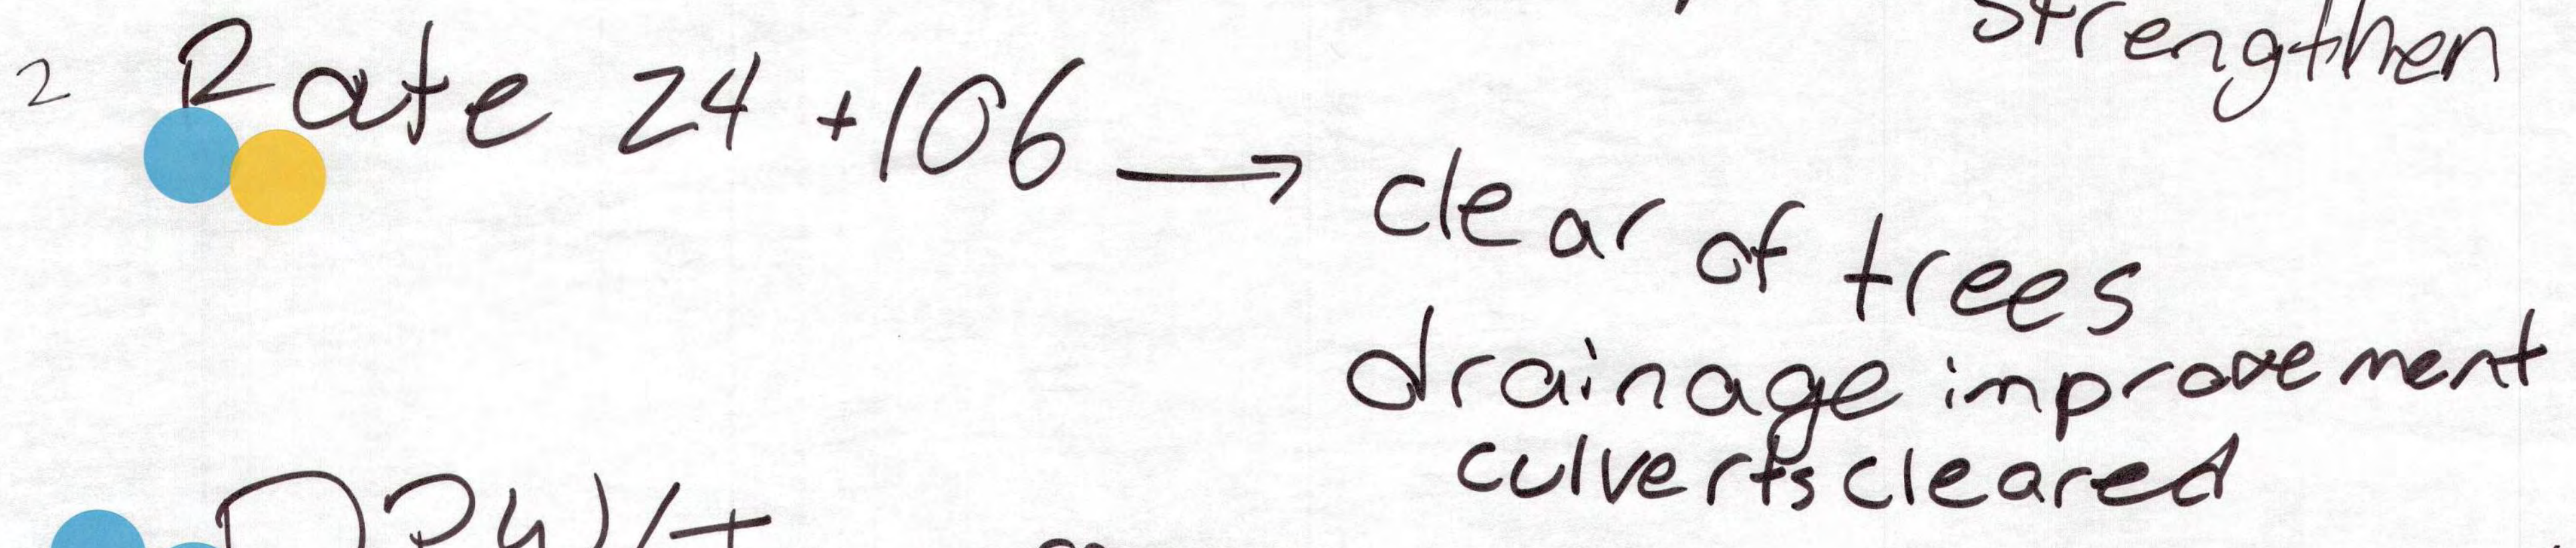 strengthen
2 Rate 24 + 106 → clear of trees
drainage improvement
culverts cleared
DPW/